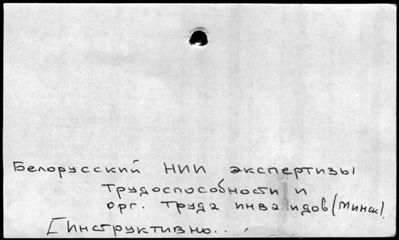 Белорусский НИИ экспертизы
трудоспособности и
орг. труда инвалидов (Минск).
[Инструктивно...